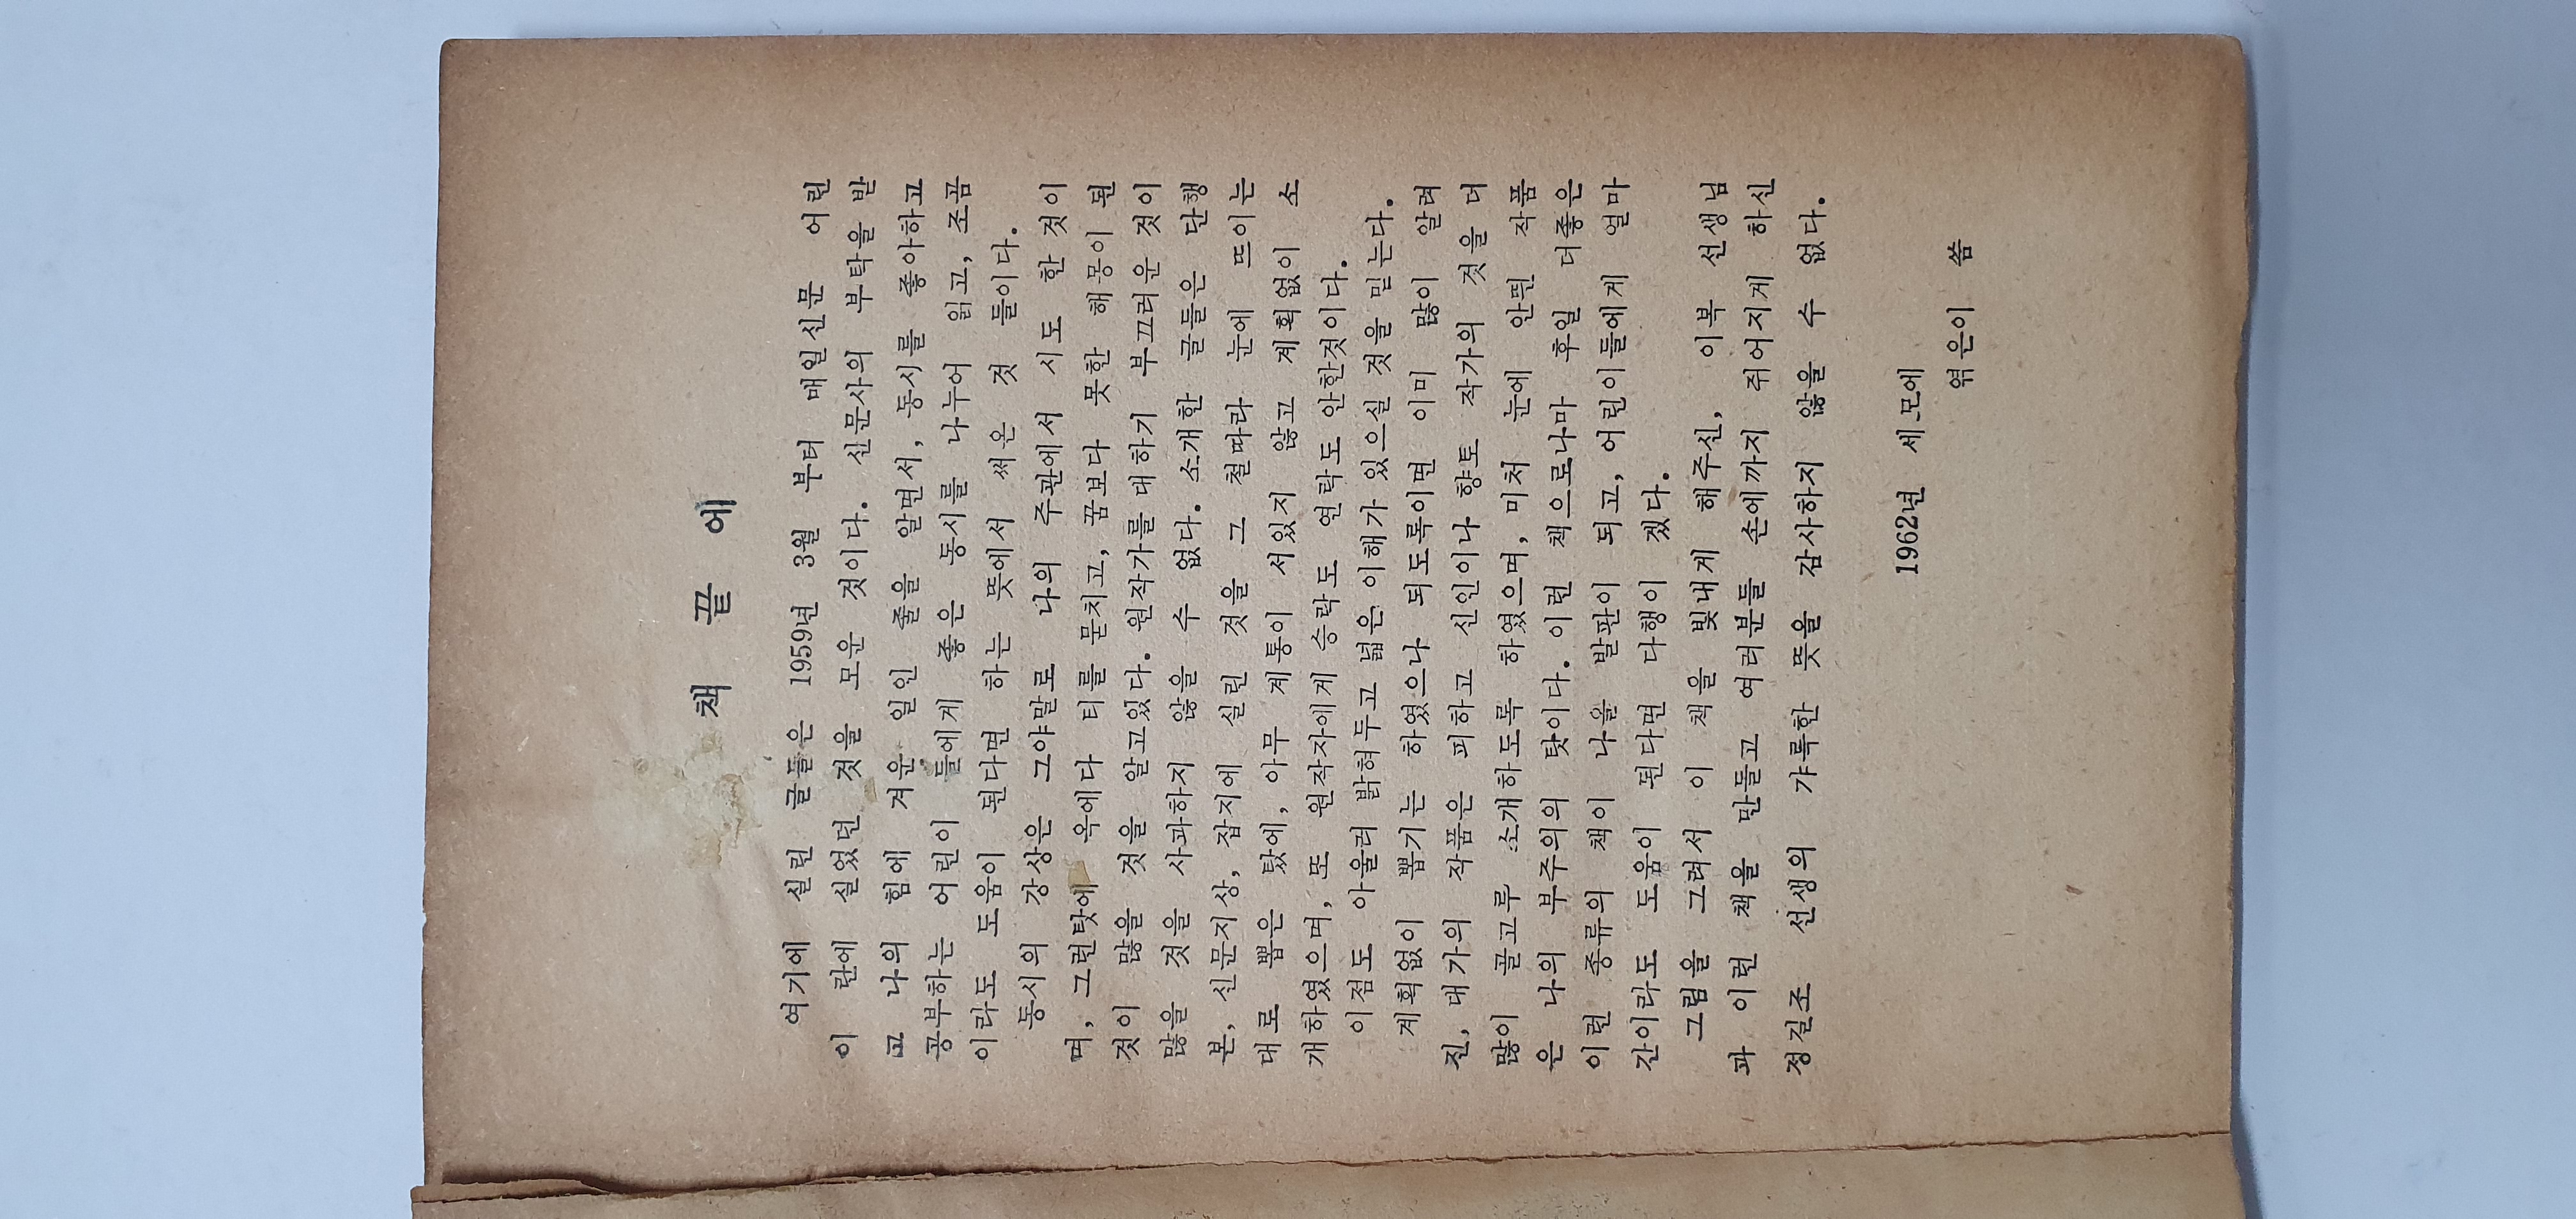 책 끝 에
여기에 실린 글들은 1959년 3월 부터 매일신문 어린
이 란에 실었던 것을 모운 것이다. 신문사의 부탁을 받
고 나의 힘에 겨운 일인 줄을 알면서, 동시를 좋아하고
공부하는 어린이 들에게 좋은 동시를 나누어 읽고, 조곰
이라도 도움이 된다면 하는 뜻에서 써온 것 들이다.
동시의 강상은 그야말로 나의 주관에서 시도 한 것이
며, 그런탓에 옥에다 티를 묻치고, 꿈보다 못한 해몽이 된
것이 많을 것을 알고있다. 원작가를 대하기 부끄러운 것이
많을 것을 사과하지 않을 수 없다. 소개한 글들은 단행
본, 신문지상, 잡지에 실린 것을 그 철따라 눈에 뜨이는
대로 뽑은 탔에, 아무 계통이 서있지 않고 계획없이 소
개하였으며, 또 원작자에게 승락도 연락도 안한것이다.
이점도 아울러 밝혀두고 넓은 이해가 있으실 것을 믿는다.
계획없이 뽑기는 하였으나 되도록이면 이미 많이 알려
진, 대가의 작품은 피하고 신인이나 향토 작가의 것을 더
많이 골고루 소개하도록 하였으며, 미처 눈에 안띈 작품
은 나의 부주의의 탓이다. 이런 책으로나마 후일 더좋은
이런 종류의 책이 나올 발판이 되고, 어린이들에게 얼마
간이라도 도움이 된다면 다행이 겠다.
그림을 그려서 이 책을 빛내게 해주신, 이복 선생님
과 이런 책을 만들고 여러분들 손에까지 쥐어지게 하신
정길조 선생의 갸륵한 뜻을 감사하지 않을 수 없다.
1962년 세모에
엮은이 씀